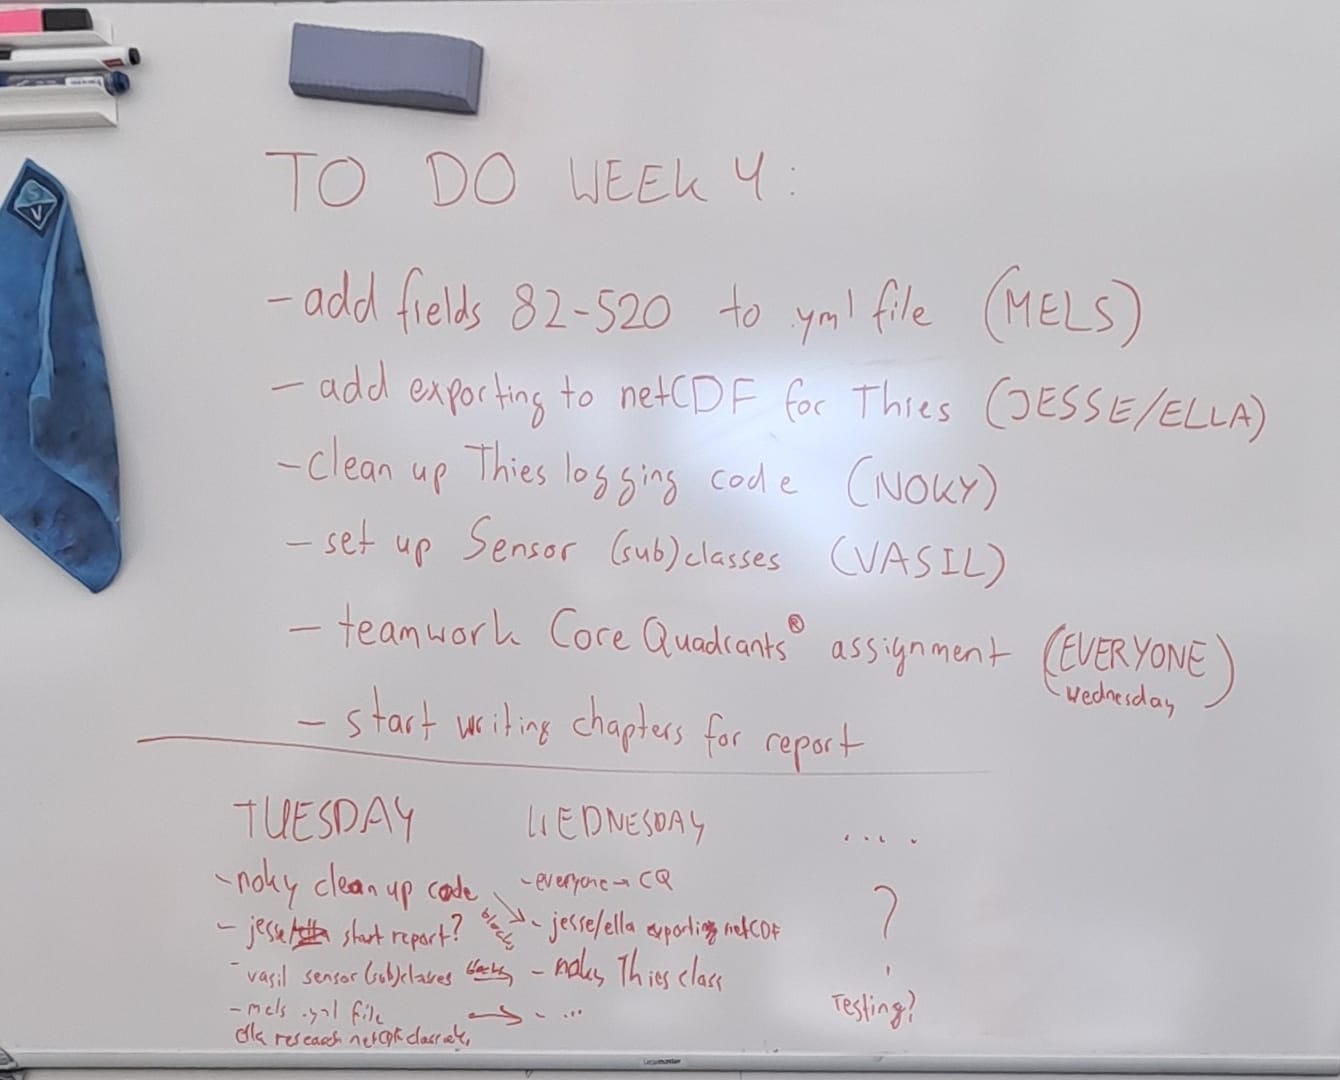 TO DO WEEK 4:
- add fields 82-520 to .yml file (MELS)
- add exporting to netCDF for Thies (JESSE/ELLA)
- clean up Thies logging code (NOKY)
- set up Sensor (sub)classes (VASIL)
- teamwork Core Quadrants® assignment (EVERYONE)
wednesday
- start writing chapters for report
TUESDAY
- noky clean up code
- jesse/ start report?
- vasil sensor (sub)classes
- mels .yml file
ella research netCDF
blocks
blocks
WEDNESDAY
- everyone → CQ
- jesse/ella exporting netCDF
- noky Thies class
→ - ...
....
?
Testing?
S
V